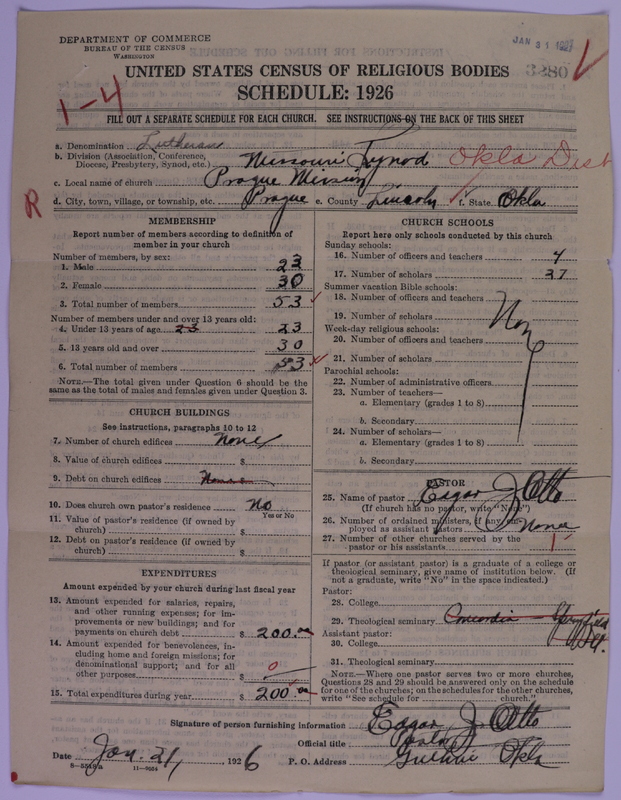 DEPARTMENT OF COMMERCE
BUREAU OF THE CENSUS
WASHINGTON
JAN 31 1927
3280
UNITED STATES CENSUS OF RELIGIOUS BODIES
SCHEDULE: 1926
1-4
FILL OUT A SEPARATE SCHEDULE FOR EACH CHURCH. SEE INSTRUCTIONS ON THE BACK OF THIS SHEET
a. Denomination Lutheran
b. Division (Association, Conference, Diocese, Presbytery, Synod, etc.) Missouri Synod Okla Dist
c. Local name of church Prague Mission
d. City, town, village, or township, etc. Prague e. County Lincoln f. State Okla
R
MEMBERSHIP
Report number of members according to definition of
member in your church
Number of members, by sex:
1. Male 23
2. Female 30
3. Total number of members 53
Number of members under and over 13 years old:
4. Under 13 years of age 23 23
5. 13 years old and over 30
6. Total number of members 53
NOTE.—The total given under Question 6 should be
same as the total of males and females given under Question 3.
CHURCH BUILDINGS
See instructions, paragraphs 10 to 12
7. Number of church edifices none
8. Value of church edifices $
9. Debt on church edifices
10. Does church own pastor's residence No
Yes or No
11. Value of pastor's residence (if owned by
church) $
12. Debt on pastor's residence (if owned by
church) $
EXPENDITURES
Amount expended by your church during last fiscal year
13. Amount expended for salaries, repairs,
and other running expenses; for im-
provements or new buildings; and for
payments on church debt $ 200.00
14. Amount expended for benevolences, in-
cluding home and foreign missions; for
denominational support; and for all
other purposes $ 0
15. Total expenditures during year $ 200.00
CHURCH SCHOOLS
Report here only schools conducted by this church
Sunday schools:
16. Number of officers and teachers 4
17. Number of scholars 37
Summer vacation Bible schools:
18. Number of officers and teachers
19. Number of scholars
Week-day religious schools:
20. Number of officers and teachers
21. Number of scholars
Parochial schools:
22. Number of administrative officers
23. Number of teachers—
a. Elementary (grades 1 to 8)
b. Secondary
24. Number of scholars—
a. Elementary (grades 1 to 8)
b. Secondary
PASTOR
25. Name of pastor Edgar J. Otto
(If church has no pastor, write "None")
26. Number of ordained ministers, if any, em-
ployed as assistant pastors None
27. Number of other churches served by the
pastor or his assistants 1
If pastor (or assistant pastor) is a graduate of a college or
theological seminary, give name of institution below. (If
not a graduate, write "No" in the space indicated.)
Pastor:
28. College
29. Theological seminary Concordia Springfield
Assistant pastor:
30. College
31. Theological seminary
NOTE.—Where one pastor serves two or more churches,
Questions 28 and 29 should be answered only on the schedule
for one of the churches; on the schedules for the other churches,
write "See schedule for church."
Signature of person furnishing information Edgar J. Otto
Official title Pastor
Date Jan. 21, 1926 P. O. Address Guthrie Okla
8-5518a 11-9604